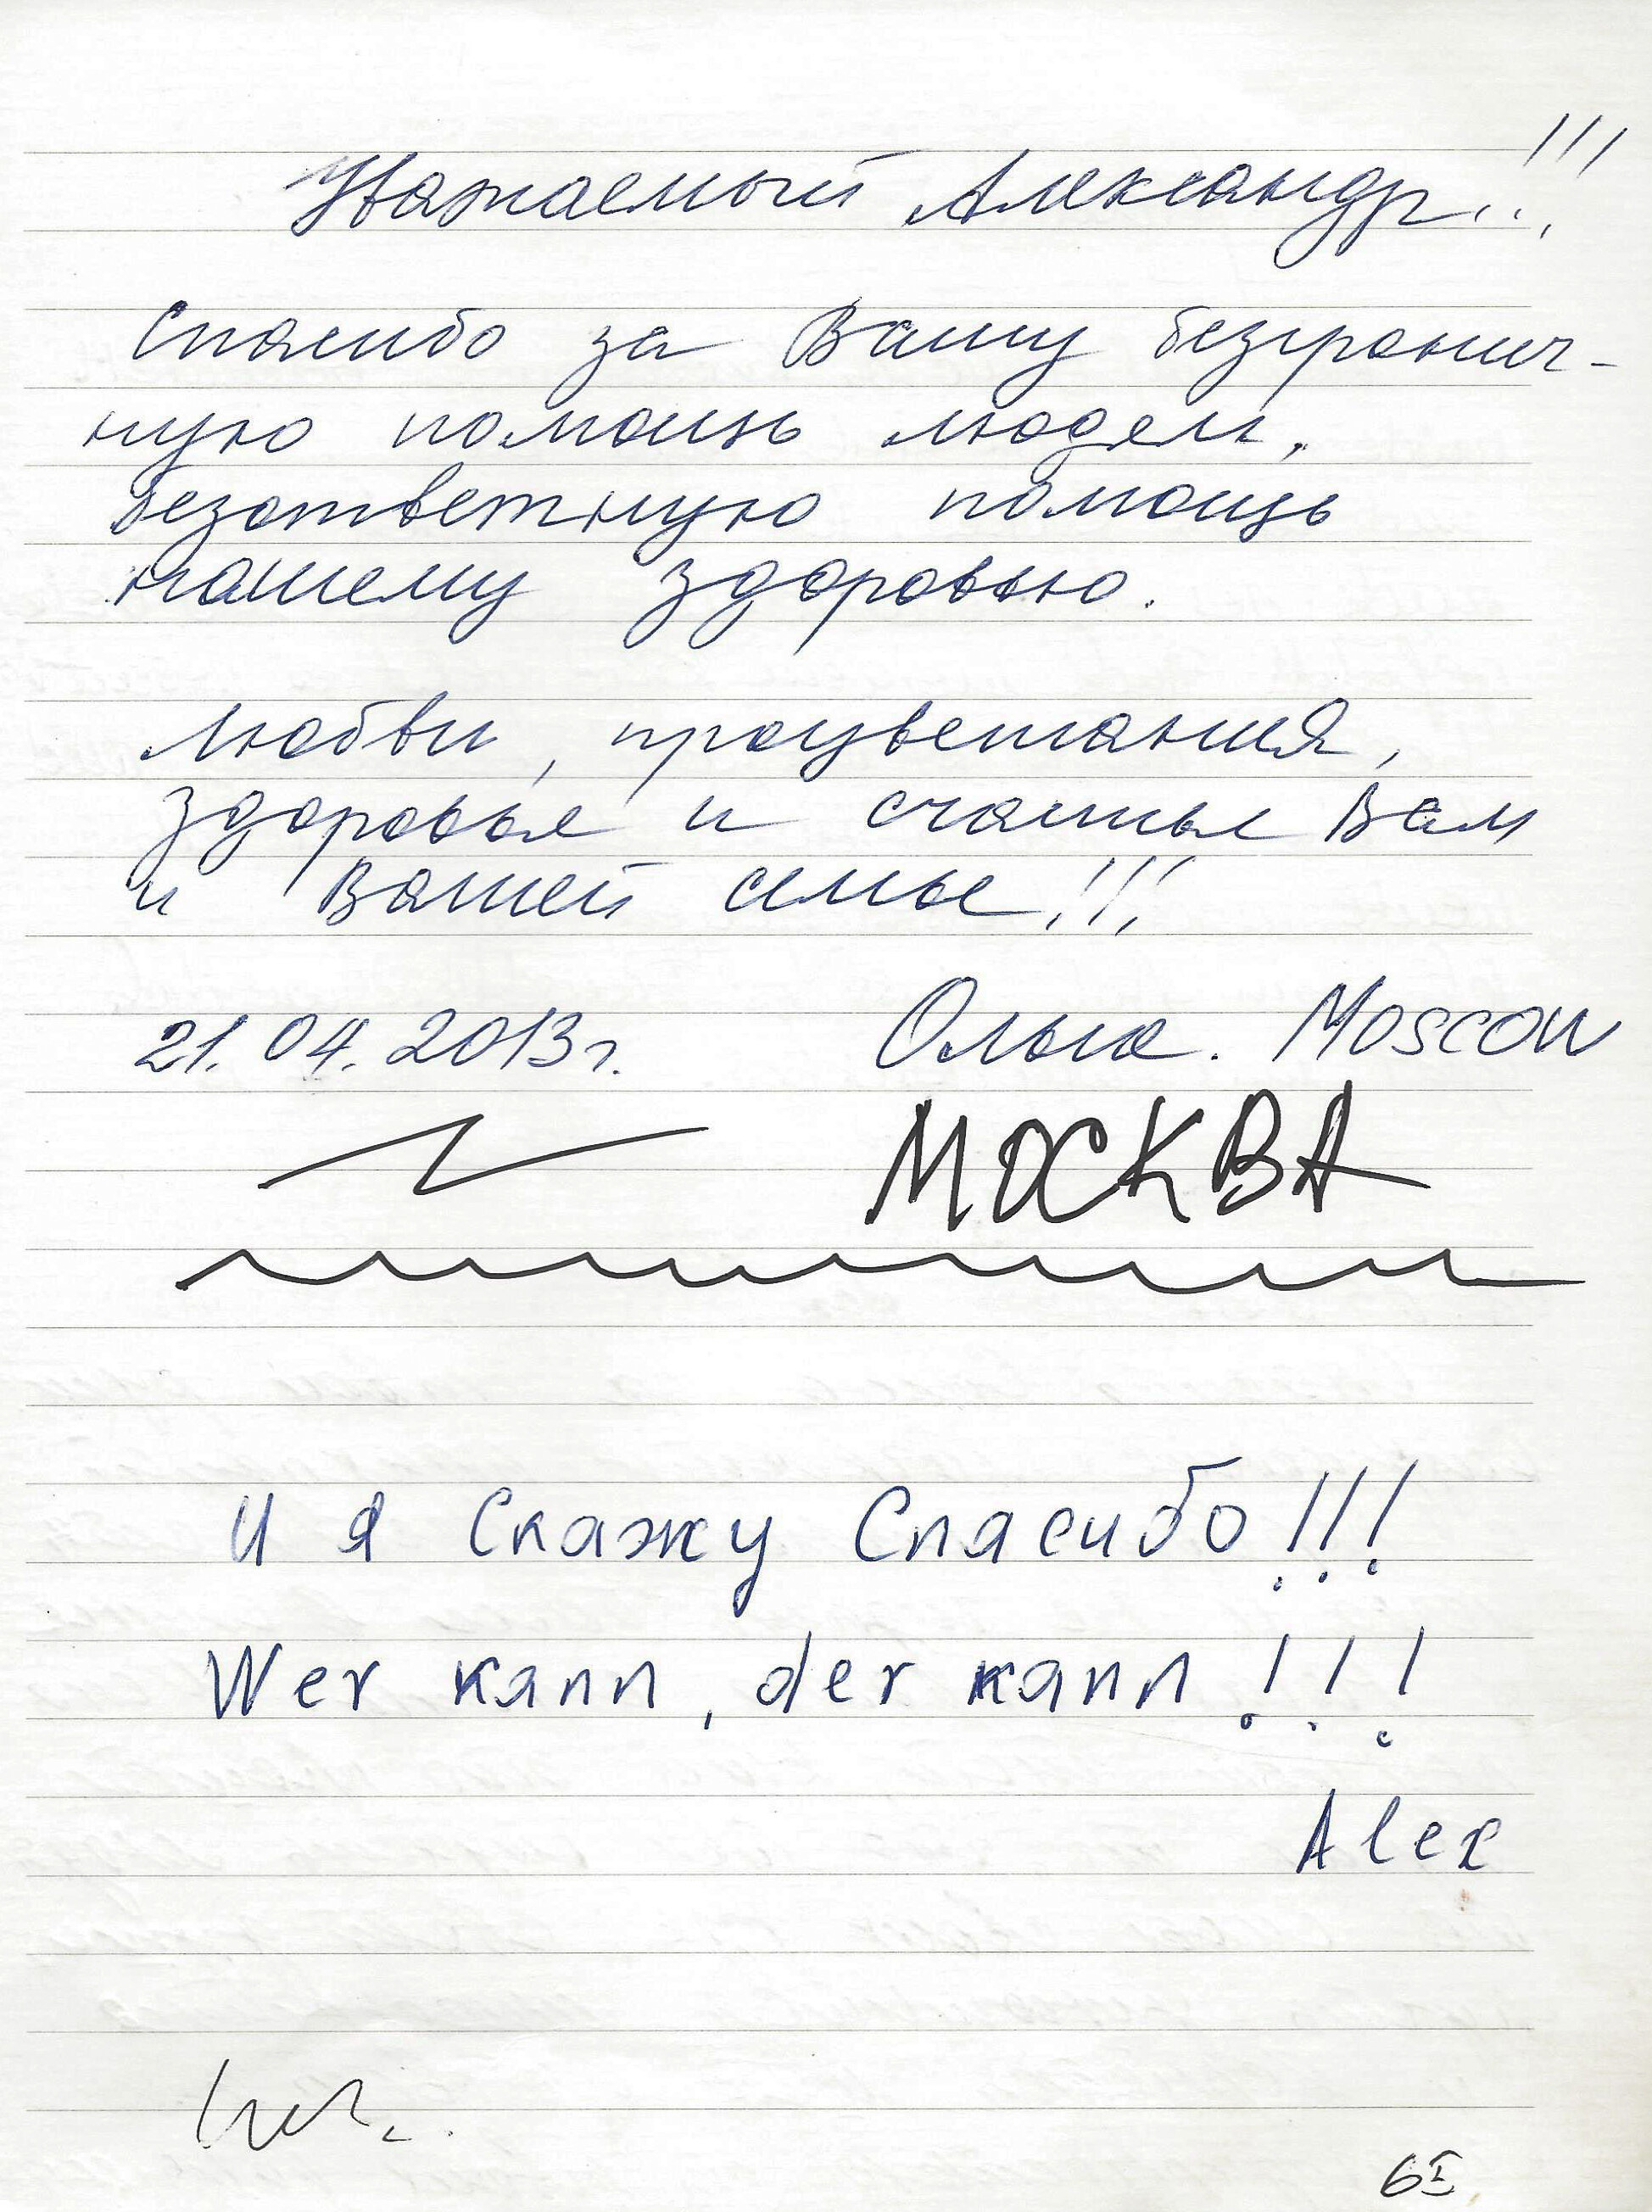 Уважаемый Александр!!!
Спасибо за Вашу безгранич-
ную помощь людям,
безответную помощь
нашему здоровью.
Любви, процветания,
здоровье и счастье Вам
и Вашей семье!!!
21.04.2013г. Ольга. Moscow
МОСКВА
И я Скажу Спасибо!!!
Wer kann, der kann!!!
Alex
6I